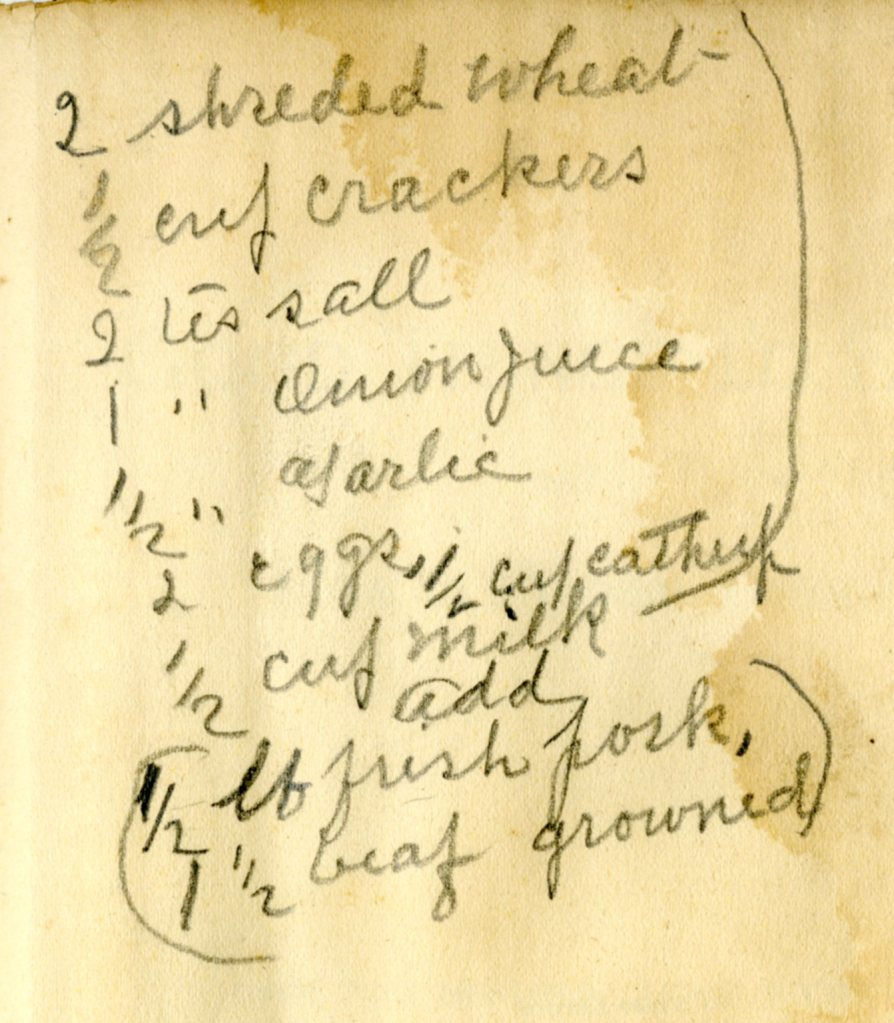 2 shreded wheat
½ cup crackers
2 tes sall
1 " Onion juice
½ " garlic
2 eggs, ½ cup cathup
½ cup milk
add
(½ lb fresh pork,
1 ½ beaf growned)